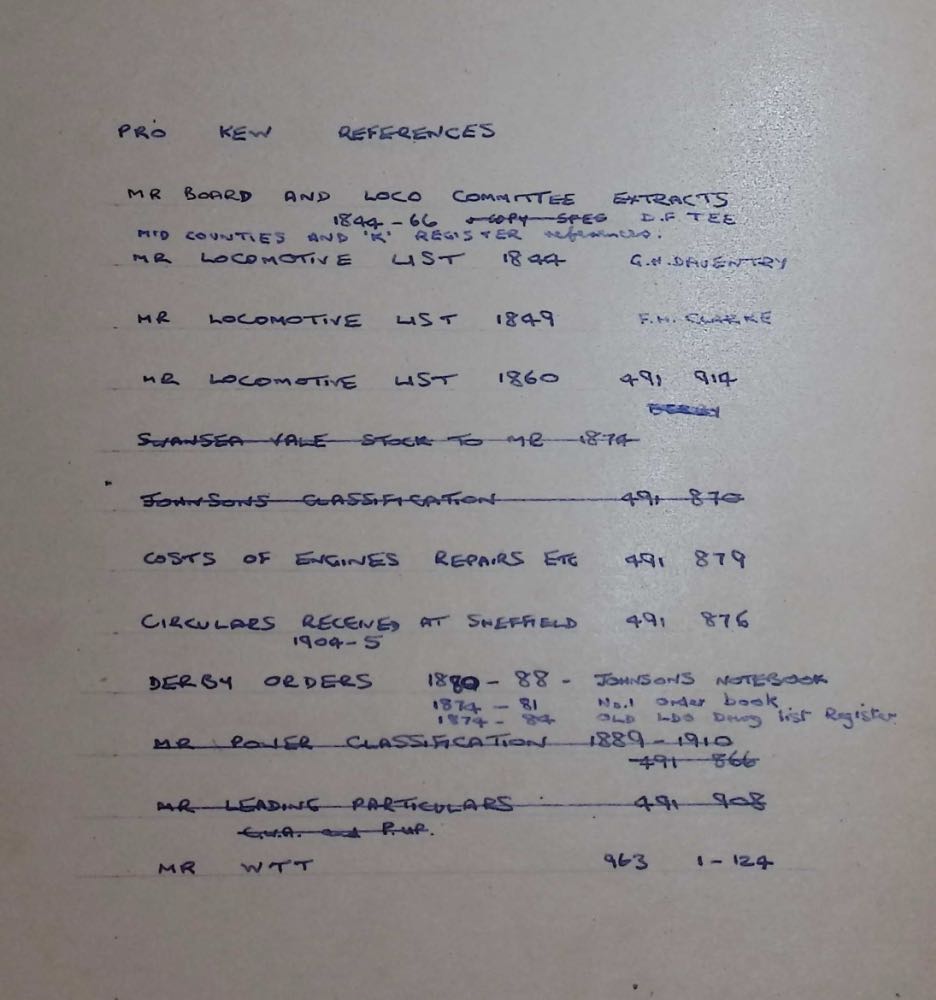 PRO KEW REFERENCES
MR BOARD AND LOCO COMMITTEE EXTRACTS
1844-66 COPY SPEG D.F TEE
MID COUNTIES AND 'K' REGISTER references:
MR LOCOMOTIVE LIST 1844 G.H.DAVENTRY
MR LOCOMOTIVE LIST 1849 F.H. CLARKE
MR LOCOMOTIVE LIST 1860 491 914
DERBY
SWANSEA VALE STOCK TO MR 1874
JOHNSONS CLASSIFICATION 491 870
COSTS OF ENGINES REPAIRS ETC 491 879
CIRCULARS RECEIVED AT SHEFFIELD 491 876
1904-5
DERBY ORDERS 1880-88 - JOHNSONS NOTEBOOK
1874 - 81 No.1 Order book
1874 - 84 OLD LDO Drwg list Register
MR POWER CLASSIFICATION 1889-1910
491 866
MR LEADING PARTICULARS 491 908
and
MR WTT 963 1-124